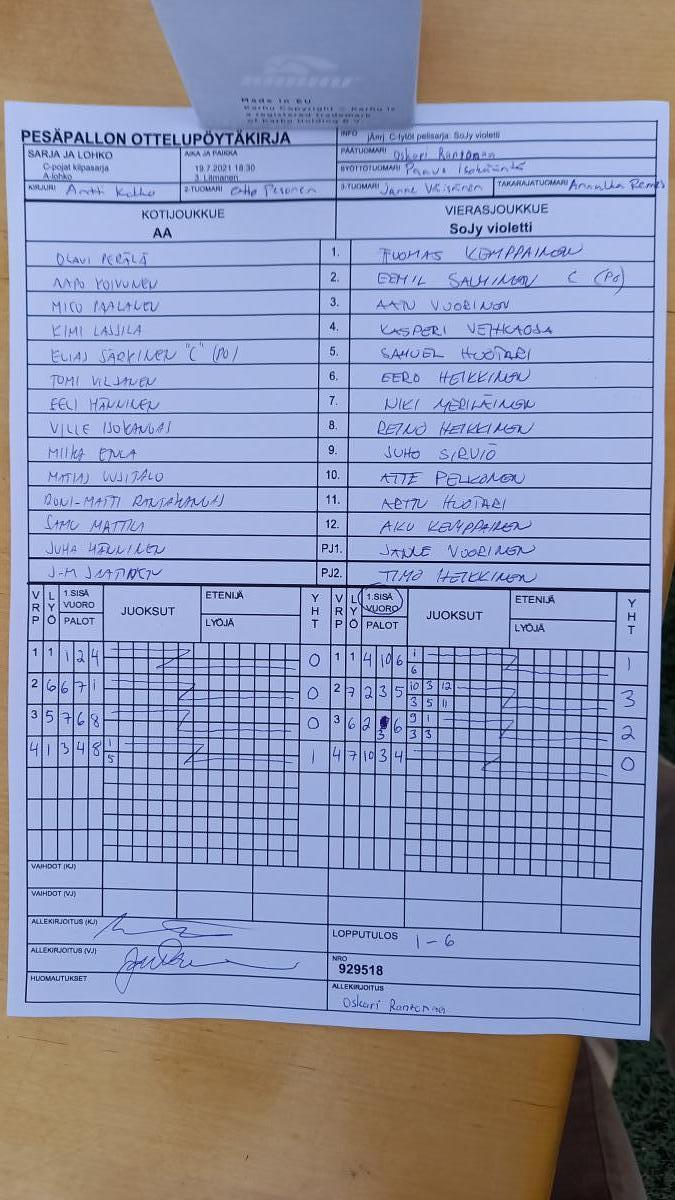 Made in EU
Karhu Copyright © Karhu is
a registered trademark
of Karhu Holding B.V.
PESÄPALLON OTTELUPÖYTÄKIRJA
INFO jÄrrj. C-tytöt pelisarja: SoJy violetti
SARJA JA LOHKO
C-pojat kilpasarja
A-lohko
AIKA JA PAIKKA
19.7.2021 18:30
3. Litmanen
PÄÄTUOMARI Oskari Rantonen
SYÖTTÖTUOMARI Paavo
KIRJURI Antti
2-TUOMARI Otto Pesonen
3-TUOMARI Janne Väisänen
TAKARAJATUOMARI Annukka Remes
KOTIJOUKKUE
AA
VIERASJOUKKUE
SoJy violetti
OLAVI PERÄLÄ 1. TUOMAS KEMPPAINEN
AAPO KOIVUNEN 2. EEMIL SALMINEN C (PO)
MICO PAALANEN 3. AATU VUORINEN
KIMI LASSILA 4. KASPERI VEHKAOJA
ELIAS SÄRKINEN "C" (PO) 5. SAMUEL HUOTARI
TOMI VILJANEN 6. EERO HEIKKINEN
EELI HÄNNINEN 7. NIKI MERILÄINEN
VILLE ISOKANGAS 8. REINO HEIKKINEN
MIIKA ENLA 9. JUHO SIRVIÖ
MATIAS UUSITALO 10. ATTE PELKONEN
RONI-MATTI RANTAKANGAS 11. ARTTU HUOTARI
SAMU MATTILA 12. AKU KEMPPAINEN
JUHA HÄNNINEN PJ1. JANNE VUORINEN
J-M JAATINEN PJ2. TIMO HEIKKINEN
VRP LYÖ 1.SISÄ VUORO PALOT JUOKSUT ETENIJÄ LYÖJÄ YHT VRP LYÖ 1.SISÄ VUORO PALOT JUOKSUT ETENIJÄ LYÖJÄ YHT
1 1 1 2 4 0 1 1 4 10 6 1 6 1
2 6 6 7 1 0 2 7 2 3 5 10 3 12 3 5 11 3
3 5 7 6 8 0 3 6 2 3 6 9 1 3 3 2
4 1 3 4 8 1 5 1 4 7 10 3 4 0
VAIHDOT (KJ)
VAIHDOT (VJ)
ALLEKIRJOITUS (KJ)
LOPPUTULOS 1-6
ALLEKIRJOITUS (VJ)
NRO
929518
HUOMAUTUKSET
ALLEKIRJOITUS
Oskari Rantonen